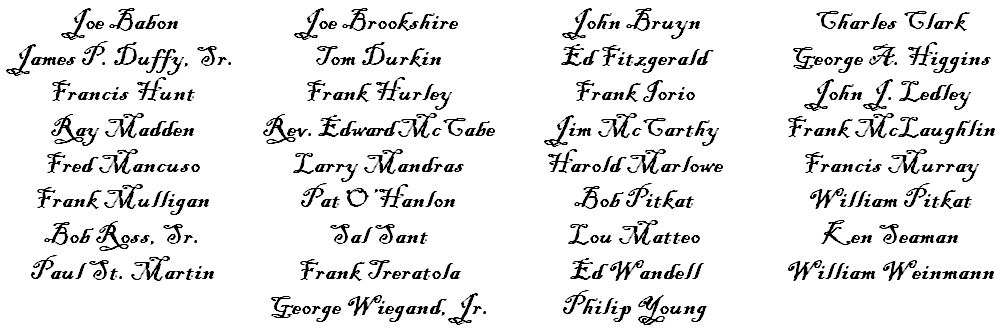 Joe Babon Joe Brookshire John Bruyn Charles Clark
James P. Duffy, Sr. Tom Durkin Ed Fitzgerald George A. Higgins
Francis Hunt Frank Hurley Frank Iorio John J. Ledley
Ray Madden Rev. Edward McCabe Jim McCarthy Frank McLaughlin
Fred Mancuso Larry Mandras Harold Marlowe Francis Murray
Frank Mulligan Pat O'Hanlon Bob Pitkat William Pitkat
Bob Ross, Sr. Sal Sant Lou Matteo Ken Seaman
Paul St. Martin Frank Treratola Ed Wandell William Weinmann
George Wiegand, Jr. Philip Young